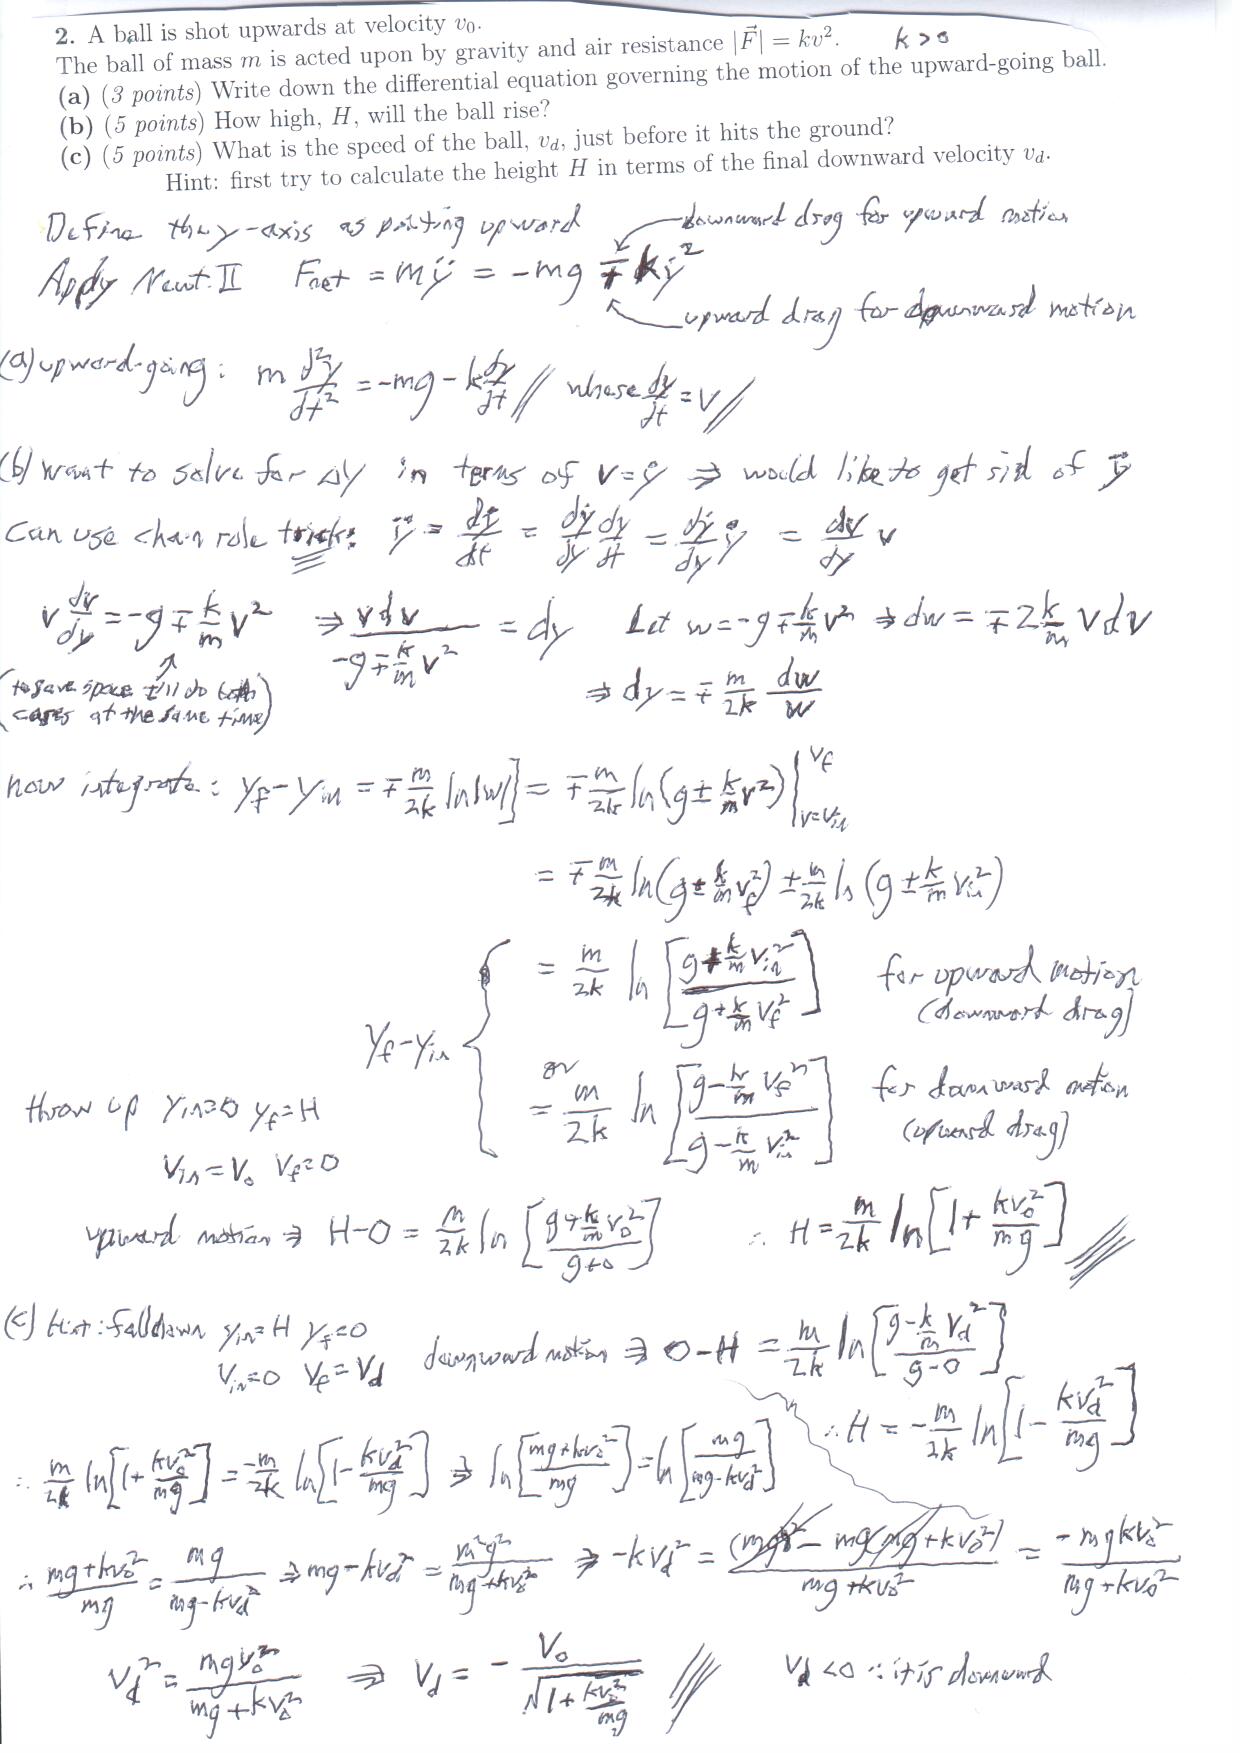 2. A ball is shot upwards at velocity v₀.
The ball of mass m is acted upon by gravity and air resistance |F⃗| = kv². k > 0
(a) (3 points) Write down the differential equation governing the motion of the upward-going ball.
(b) (5 points) How high, H, will the ball rise?
(c) (5 points) What is the speed of the ball, v_d, just before it hits the ground?
Hint: first try to calculate the height H in terms of the final downward velocity v_d.
Define the y-axis as pointing upward
downward drag for upward motion
Apply Newt. II F_net = mÿ = -mg ∓ kẏ²
upward drag for downward motion
(a) upward-going: m d²y/dt² = -mg - k dy/dt // where dy/dt = v //
(b) want to solve for Δy in terms of v = ẏ ⇒ would like to get rid of ÿ
Can use chain rule trick: ÿ = dẏ/dt = dẏ/dy dy/dt = dẏ/dy ẏ = dv/dy v
v dv/dy = -g ∓ k/m v² ⇒ v dv / (-g ∓ k/m v²) = dy Let w = -g ∓ k/m v² ⇒ dw = ∓2 k/m v dv
(to save space I'll do both cases at the same time)
⇒ dy = ∓ m/2k dw/w
now integrate: y_f - y_in = ∓ m/2k ln|w|] = ∓ m/2k ln(g ± k/m v²) |_{v=v_in}^{v_f}
= ∓ m/2k ln(g ± k/m v_f²) ± m/2k ln(g ± k/m v_in²)
y_f - y_in { = m/2k ln[(g + k/m v_in²)/(g + k/m v_f²)] for upward motion (downward drag)
or = m/2k ln[(g - k/m v_f²)/(g - k/m v_in²)] for downward motion (upward drag)
throw up y_in = 0 y_f = H
v_in = v₀ v_f = 0
upward motion ⇒ H - 0 = m/2k ln[(g + k/m v₀²)/(g + 0)] ∴ H = m/2k ln[1 + kv₀²/mg] //
(c) Hint: fall down y_in = H y_f = 0
v_in = 0 v_f = v_d downward motion ⇒ 0 - H = m/2k ln[(g - k/m v_d²)/(g - 0)]
∴ H = - m/2k ln[1 - kv_d²/mg]
∴ m/2k ln[1 + kv₀²/mg] = -m/2k ln[1 - kv_d²/mg] ⇒ ln[(mg + kv₀²)/mg] = ln[mg/(mg - kv_d²)]
∴ (mg + kv₀²)/mg = mg/(mg - kv_d²) ⇒ mg - kv_d² = m²g²/(mg + kv₀²) ⇒ -kv_d² = (m²g² - mg(mg + kv₀²))/(mg + kv₀²) = -mgkv₀²/(mg + kv₀²)
v_d² = mgv₀²/(mg + kv₀²) ⇒ v_d = - v₀/√(1 + kv₀²/mg) // v_d < 0 ∵ it is downward